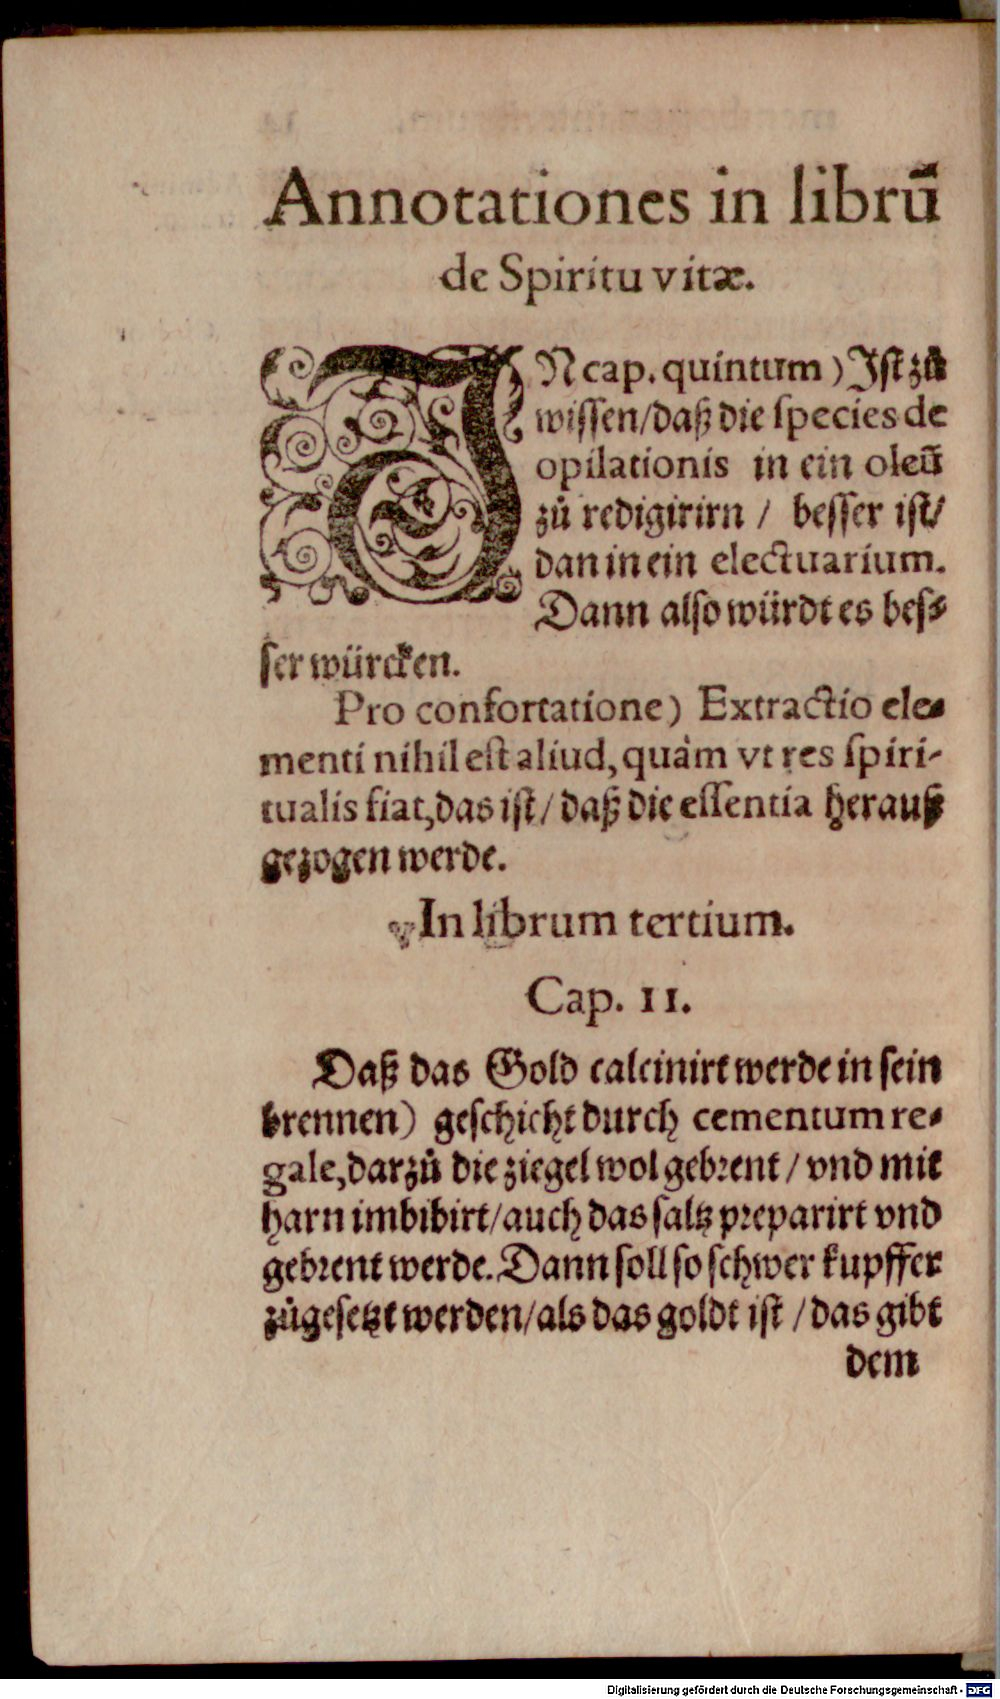 Annotationes in librū
de Spiritu vitæ.
IN cap. quintum) Ist zů
wissen/daß die species de
opilationis in ein oleū
zů redigirirn / besser ist/
dan in ein electuarium.
Dann also würdt es bes⸗
ser würcken.
Pro confortatione) Extractio ele-
menti nihil est aliud, quàm vt res spiri-
tualis fiat, das ist/ daß die essentia herauß
gezogen werde.
In librum tertium.
Cap. II.
Daß das Gold calcinirt werde in sein
brennen) geschicht durch cementum re-
gale, darzů die ziegel wol gebrent/ vnd mit
harn imbibirt/auch das saltz preparirt vnd
gebrent werde. Dann soll so schwer kupffer
zůgesetzt werden/als das goldt ist/das gibt
dem
Digitalisierung gefördert durch die Deutsche Forschungsgemeinschaft - DFG